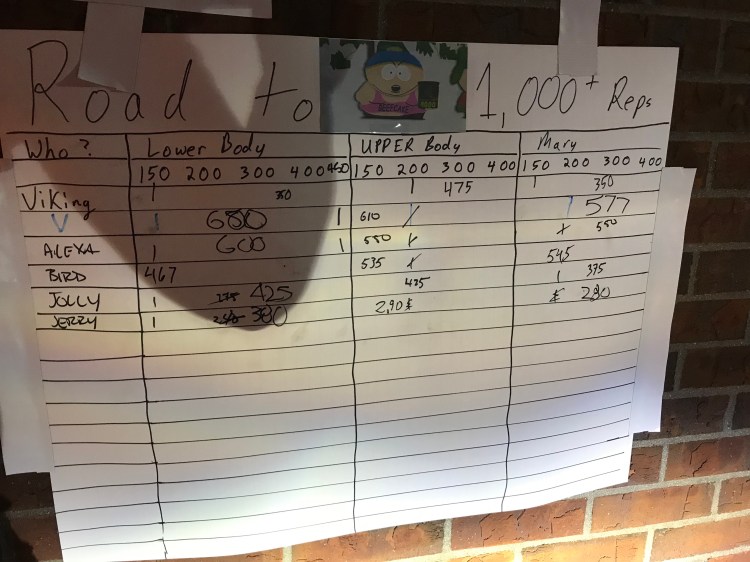 Road to 1,000+ Reps
Who? Lower Body UPPER Body Mary
150 200 300 400 450 150 200 300 400 150 200 300 400
Viking 1 350 1 475 1 350
V 1 680 1 610 1 577
ALEXA 1 600 1 550 x 550
BIRD 467 535 x 545
JOLLY 1 425 425 1 375
JERRY 1 380 2,90 280